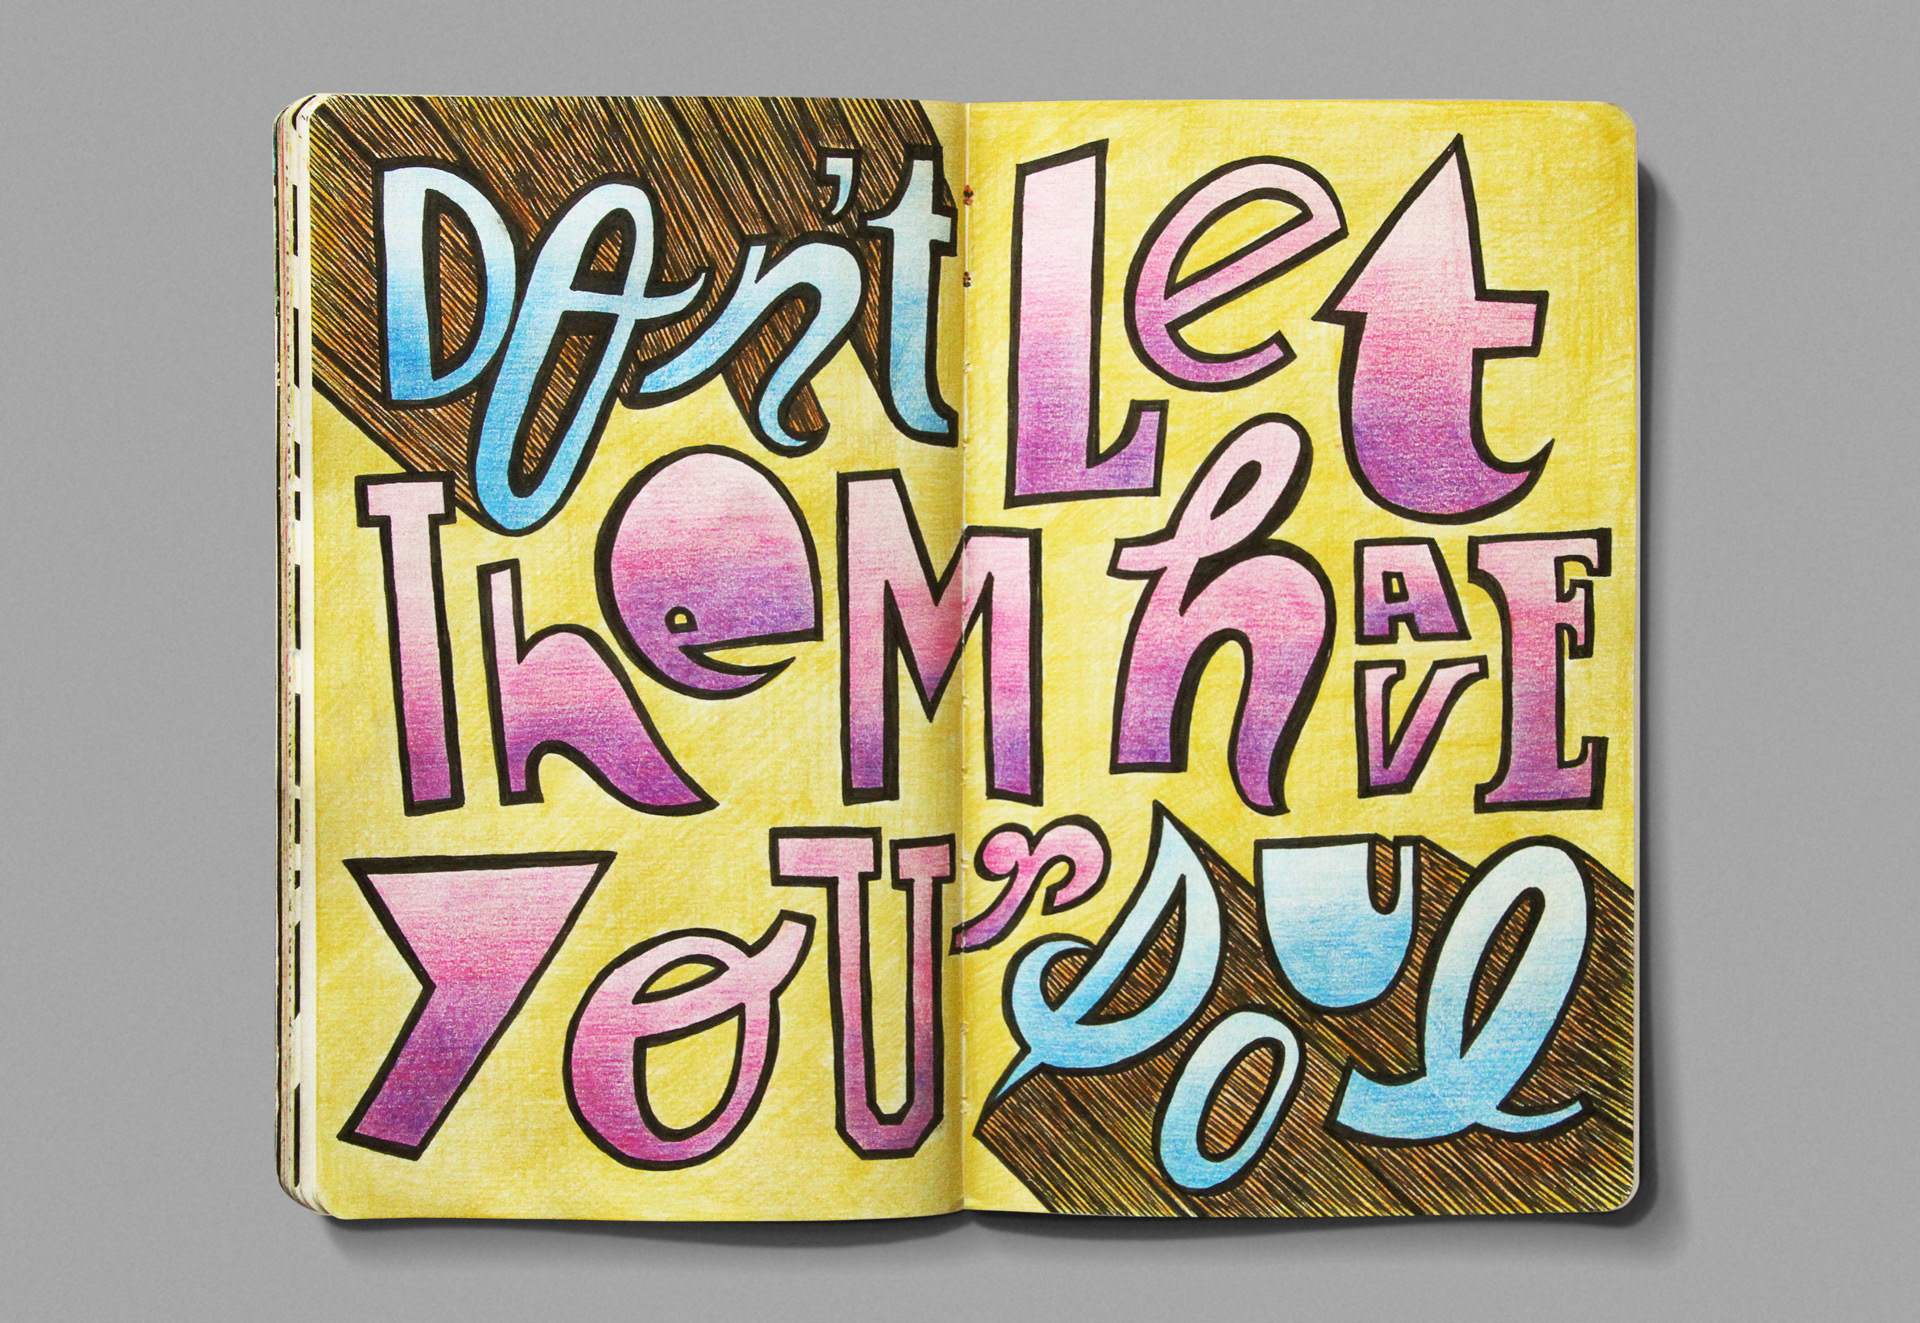 Don't Let
TheM hAVE
YoUr SOul